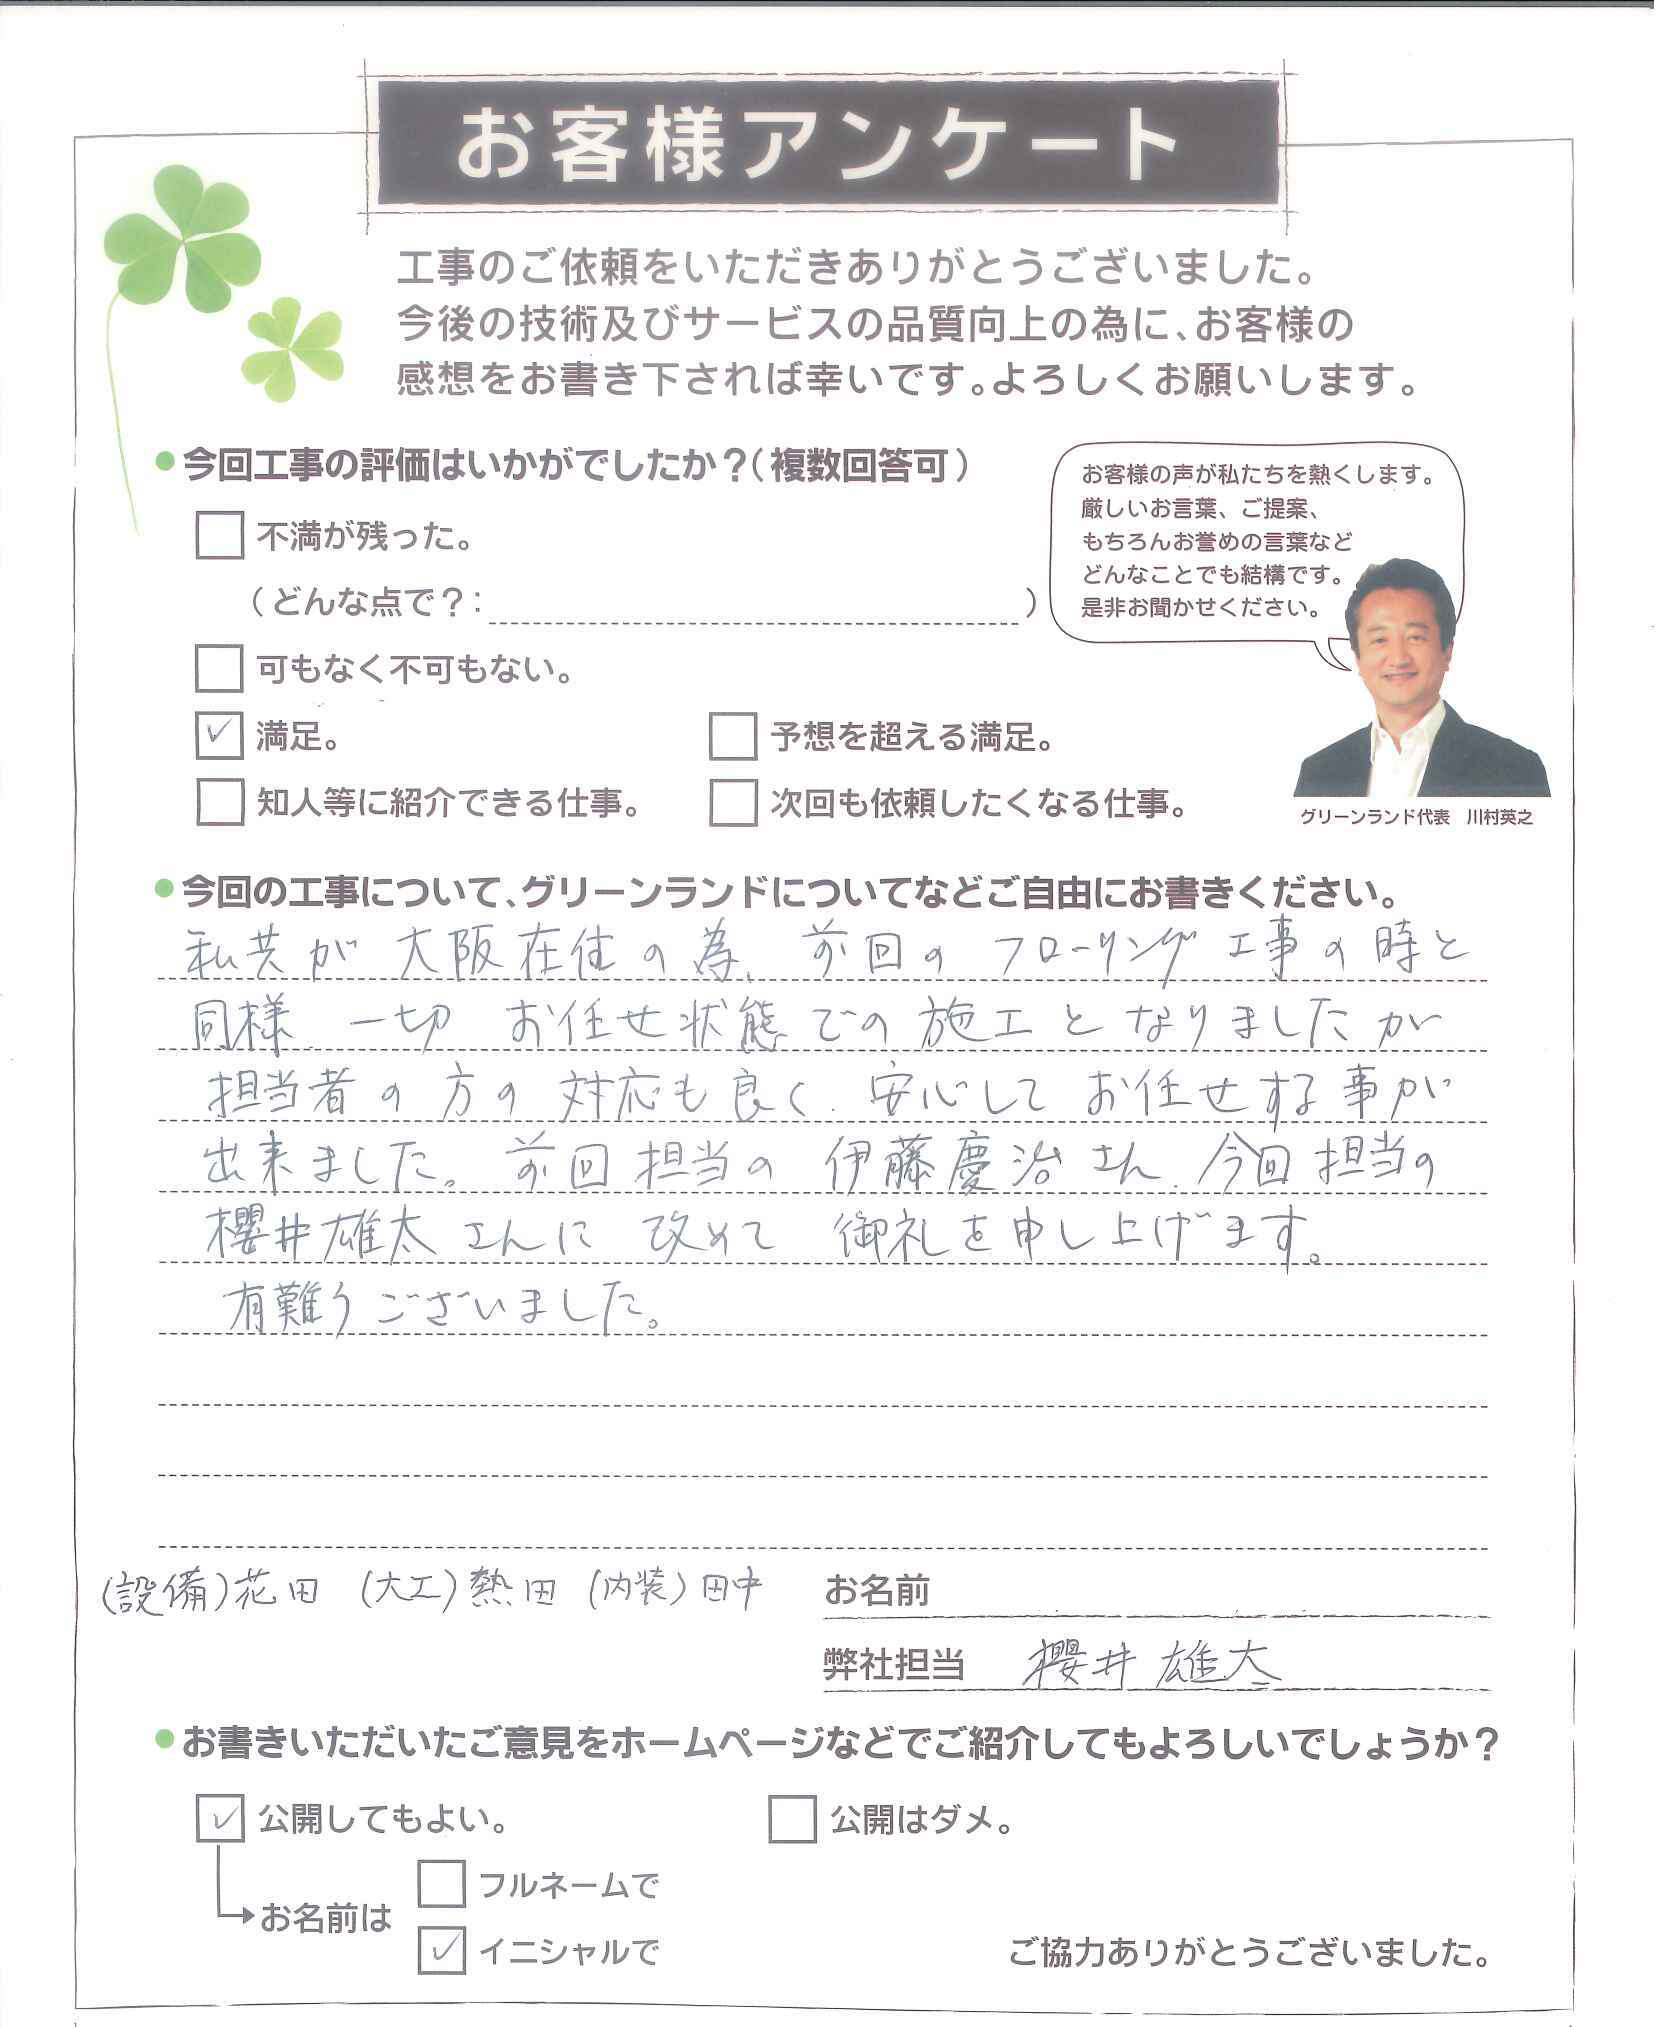 お客様アンケート
工事のご依頼をいただきありがとうございました。
今後の技術及びサービスの品質向上の為に、お客様の
感想をお書き下されば幸いです。よろしくお願いします。
今回工事の評価はいかがでしたか？（複数回答可）
不満が残った。
（どんな点で？： ）
可もなく不可もない。
満足。 予想を超える満足。
知人等に紹介できる仕事。 次回も依頼したくなる仕事。
お客様の声が私たちを熱くします。
厳しいお言葉、ご提案、
もちろんお誉めの言葉など
どんなことでも結構です。
是非お聞かせください。
グリーンランド代表 川村英之
今回の工事について、グリーンランドについてなどご自由にお書きください。
私共が大阪在住の為、前回のフローリング工事の時と
同様、一切お任せ状態での施工となりましたが
担当者の方の対応も良く、安心してお任せする事が
出来ました。前回担当の伊藤慶治さん、今回担当の
櫻井雄太さんに改めて御礼を申し上げます。
有難うございました。
(設備)花田 (大工)熱田 (内装)田中
お名前
弊社担当 櫻井雄太
お書きいただいたご意見をホームページなどでご紹介してもよろしいでしょうか？
公開してもよい。 公開はダメ。
お名前は
フルネームで
イニシャルで
ご協力ありがとうございました。